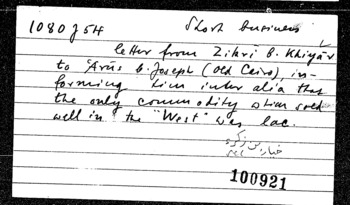 1080 J 54 Short business
letter from Zikri b. Khiyār
to ʿArūs b. Joseph (Old Cairo), in-
forming him inter alia that
the only commodity which sold
well in the "West" was lac.
100921